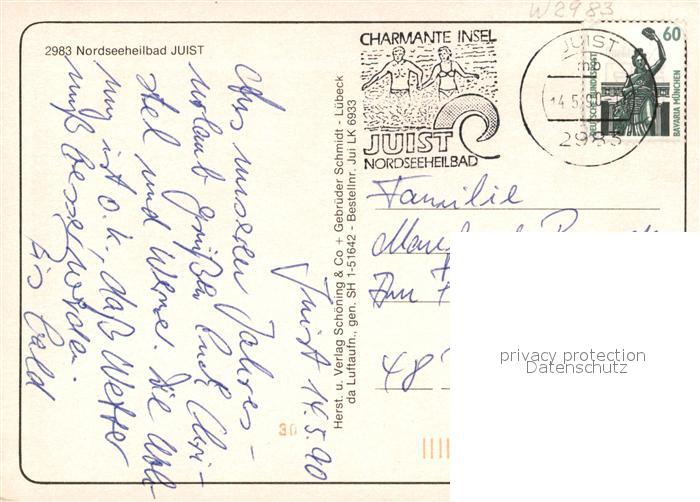 W2983
2983 Nordseeheilbad JUIST
CHARMANTE INSEL
JUIST
NORDSEEHEILBAD
JUIST
mb
14.5.
2983
60
DEUTSCHE BUNDESPOST
BAVARIA MÜNCHEN
Herst. u. Verlag Schöning & Co + Gebrüder Schmidt - Lübeck
da Luftaufn., gen. SH 1-51642 - Bestellnr. Jui LK 6933
Juist 14.5.90
Aus unserem Jahres-
urlaub grüßen Euch Chri-
stel und Werner. Die Woh
nung ist o.k., daß Wetter
muß besser werden.
Bis bald
Familie
48
30
privacy protection
Datenschutz